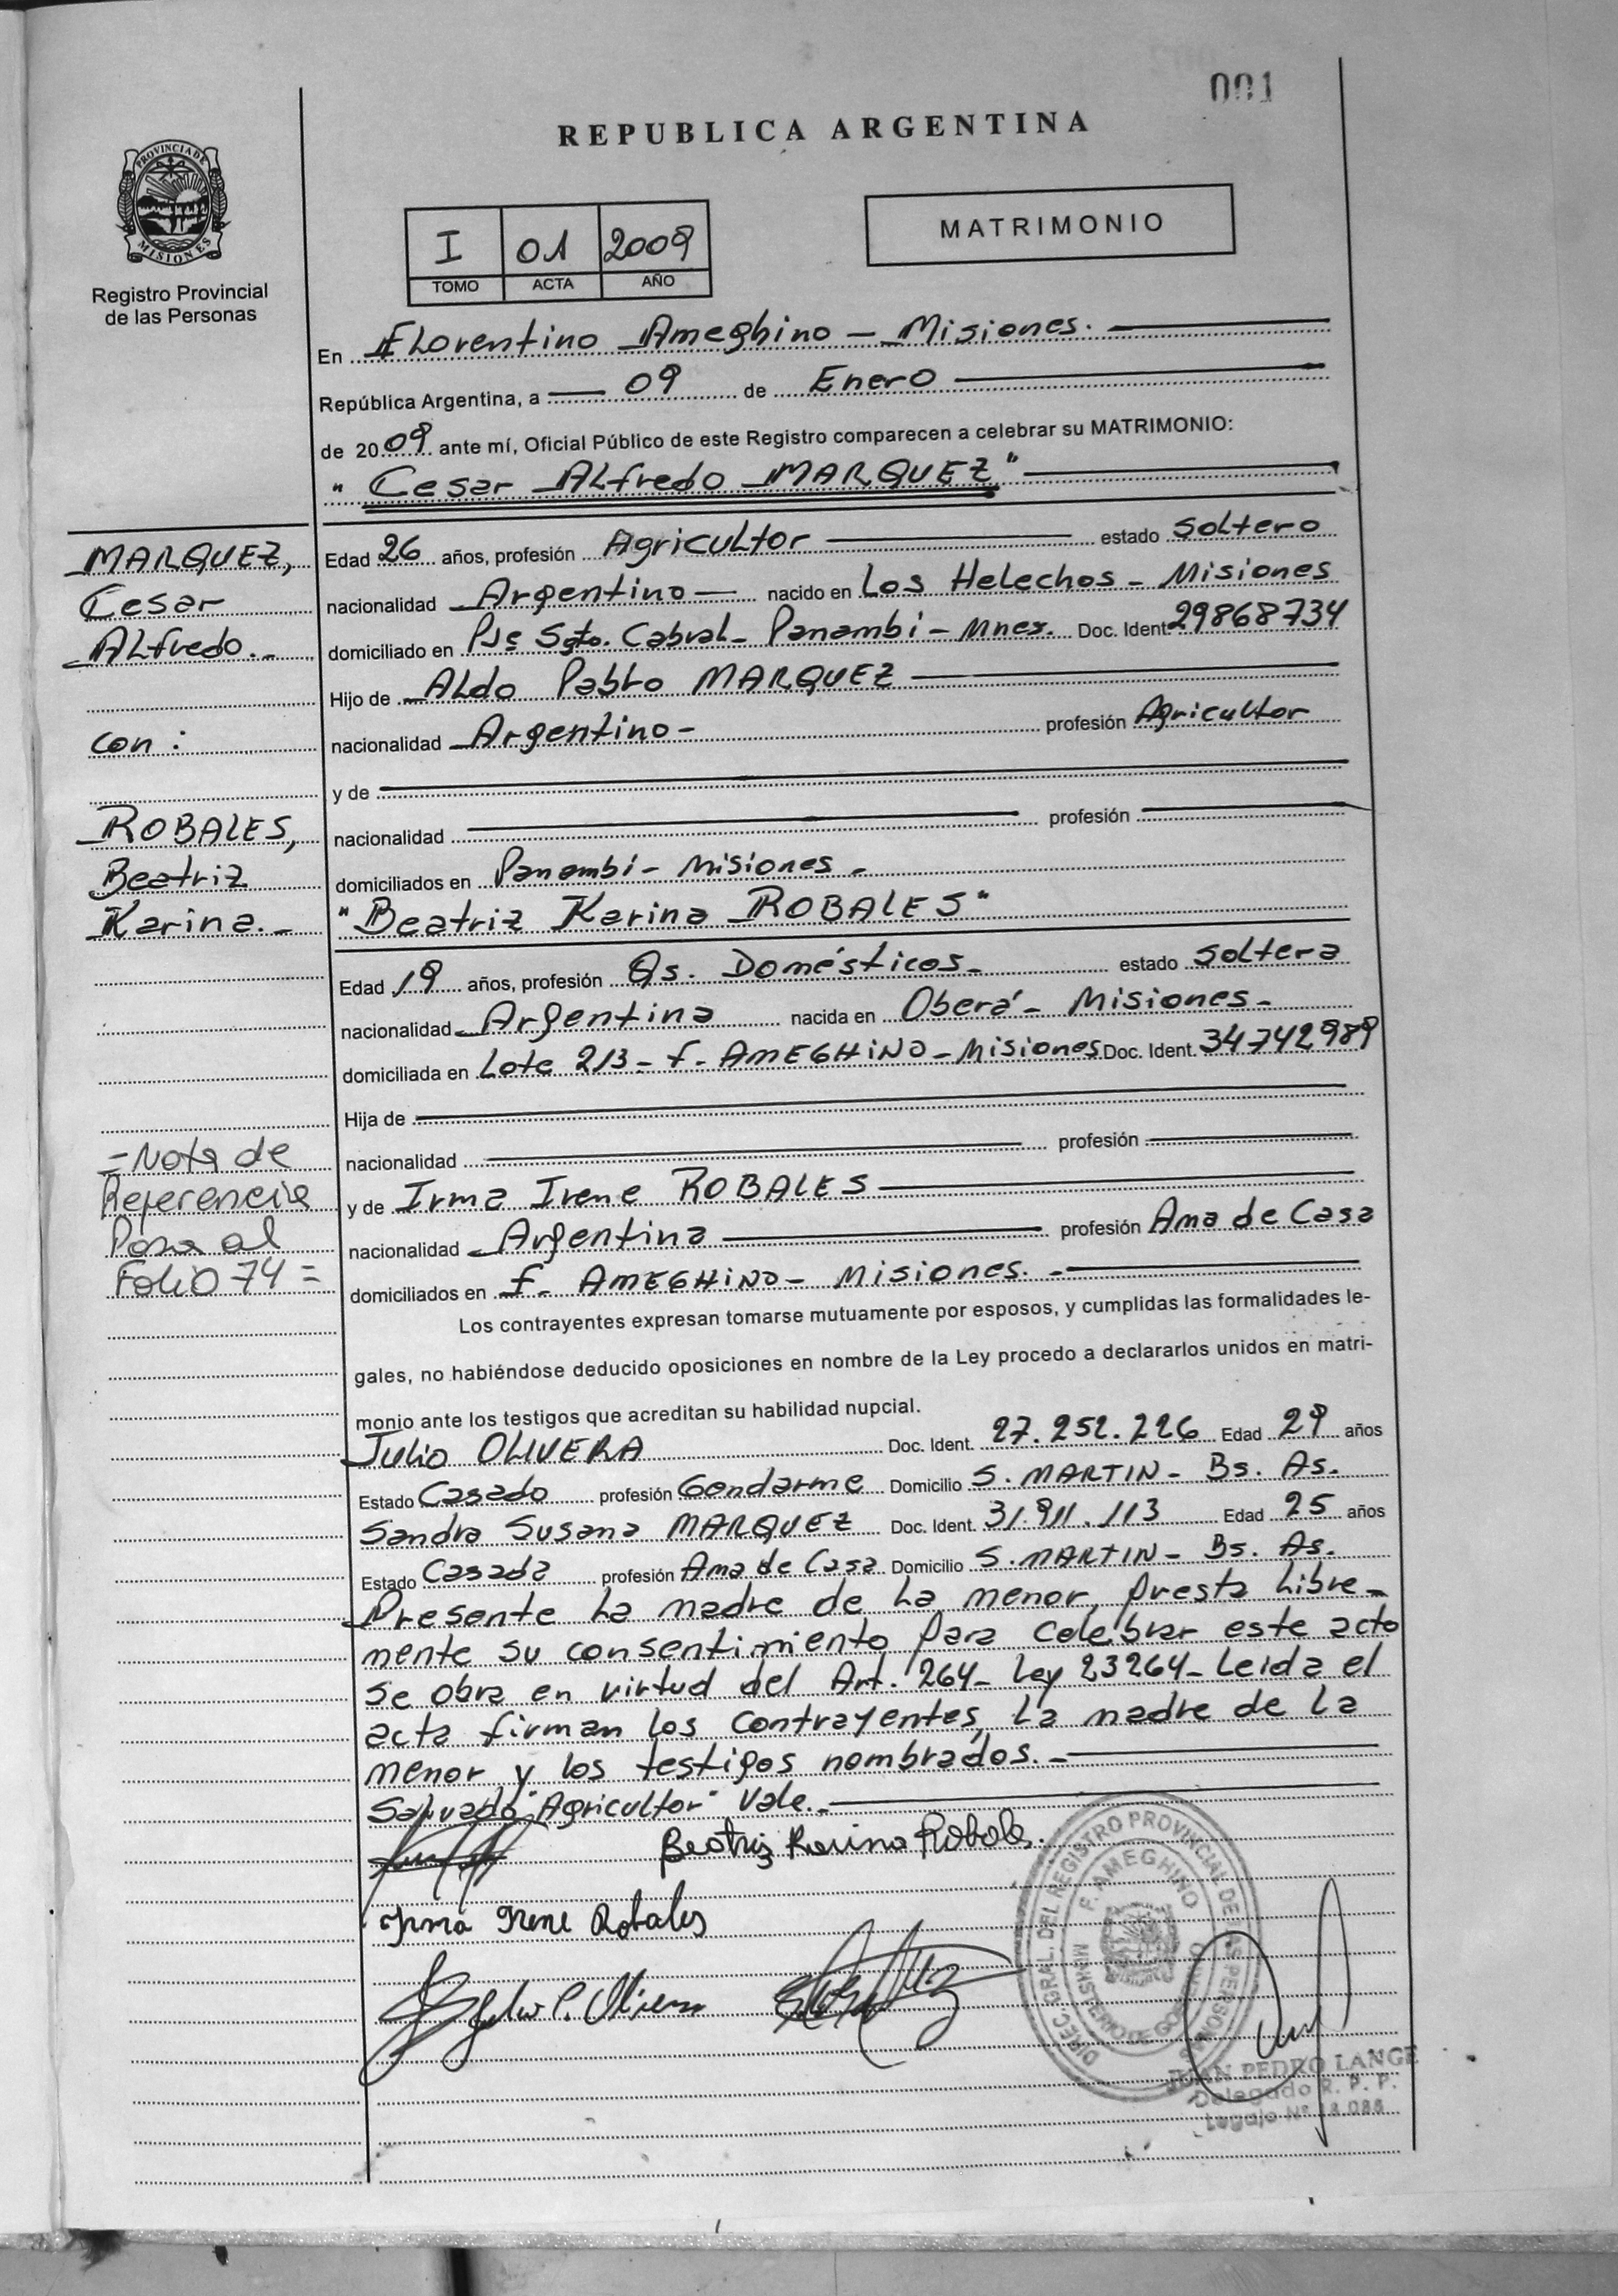 001
REPUBLICA ARGENTINA
PROVINCIA DE
MISIONES
Registro Provincial
de las Personas
I 01 2009
TOMO ACTA AÑO
MATRIMONIO
En Florentino Ameghino - Misiones.
República Argentina, a 09 de Enero
de 2009 ante mí, Oficial Público de este Registro comparecen a celebrar su MATRIMONIO:
"Cesar Alfredo MARQUEZ"
MARQUEZ,
Cesar
Alfredo.-
con:
ROBALES,
Beatriz
Karina.-
Edad 26 años, profesión Agricultor estado Soltero
nacionalidad Argentino nacido en Los Helechos - Misiones
domiciliado en Pje Sgto. Cabral - Panambí - Mnes. Doc. Ident. 29868734
Hijo de Aldo Pablo MARQUEZ
nacionalidad Argentino - profesión Agricultor
y de
nacionalidad profesión
domiciliados en Panambí - Misiones -
"Beatriz Karina ROBALES"
Edad 19 años, profesión Qs. Domésticos - estado Soltera
nacionalidad Argentina nacida en Oberá - Misiones -
domiciliada en Lote 213 - F. AMEGHINO - Misiones Doc. Ident. 34742989
Hija de
nacionalidad profesión
y de Irma Irene ROBALES
nacionalidad Argentina profesión Ama de Casa
domiciliados en F. AMEGHINO - Misiones. -
= Nota de
Referencia
Pasa al
Folio 74 =
Los contrayentes expresan tomarse mutuamente por esposos, y cumplidas las formalidades le-
gales, no habiéndose deducido oposiciones en nombre de la Ley procedo a declararlos unidos en matri-
monio ante los testigos que acreditan su habilidad nupcial.
Julio OLIVERA Doc. Ident. 27.252.226 Edad 29 años
Estado Casado profesión Gendarme Domicilio S. MARTIN - Bs. As.
Sandra Susana MARQUEZ Doc. Ident. 31.911.113 Edad 25 años
Estado Casada profesión Ama de Casa Domicilio S. MARTIN - Bs. As.
Presente la madre de la menor, presta libre-
mente su consentimiento para celebrar este acto
se obra en virtud del Art. 264 - Ley 23264 - Leida el
acta firman los contrayentes, la madre de la
menor y los testigos nombrados. -
Salvado "Agricultor" Vale. -
Beatriz Karina Robales.
Irma Irene Robales
DIREC. GRAL. DEL REGISTRO PROVINCIAL DE LAS PERSONAS
F. AMEGHINO
MINISTERIO DE GOBIERNO
JUAN PEDRO LANGE
Delegado R. P. P.
Legajo Nº